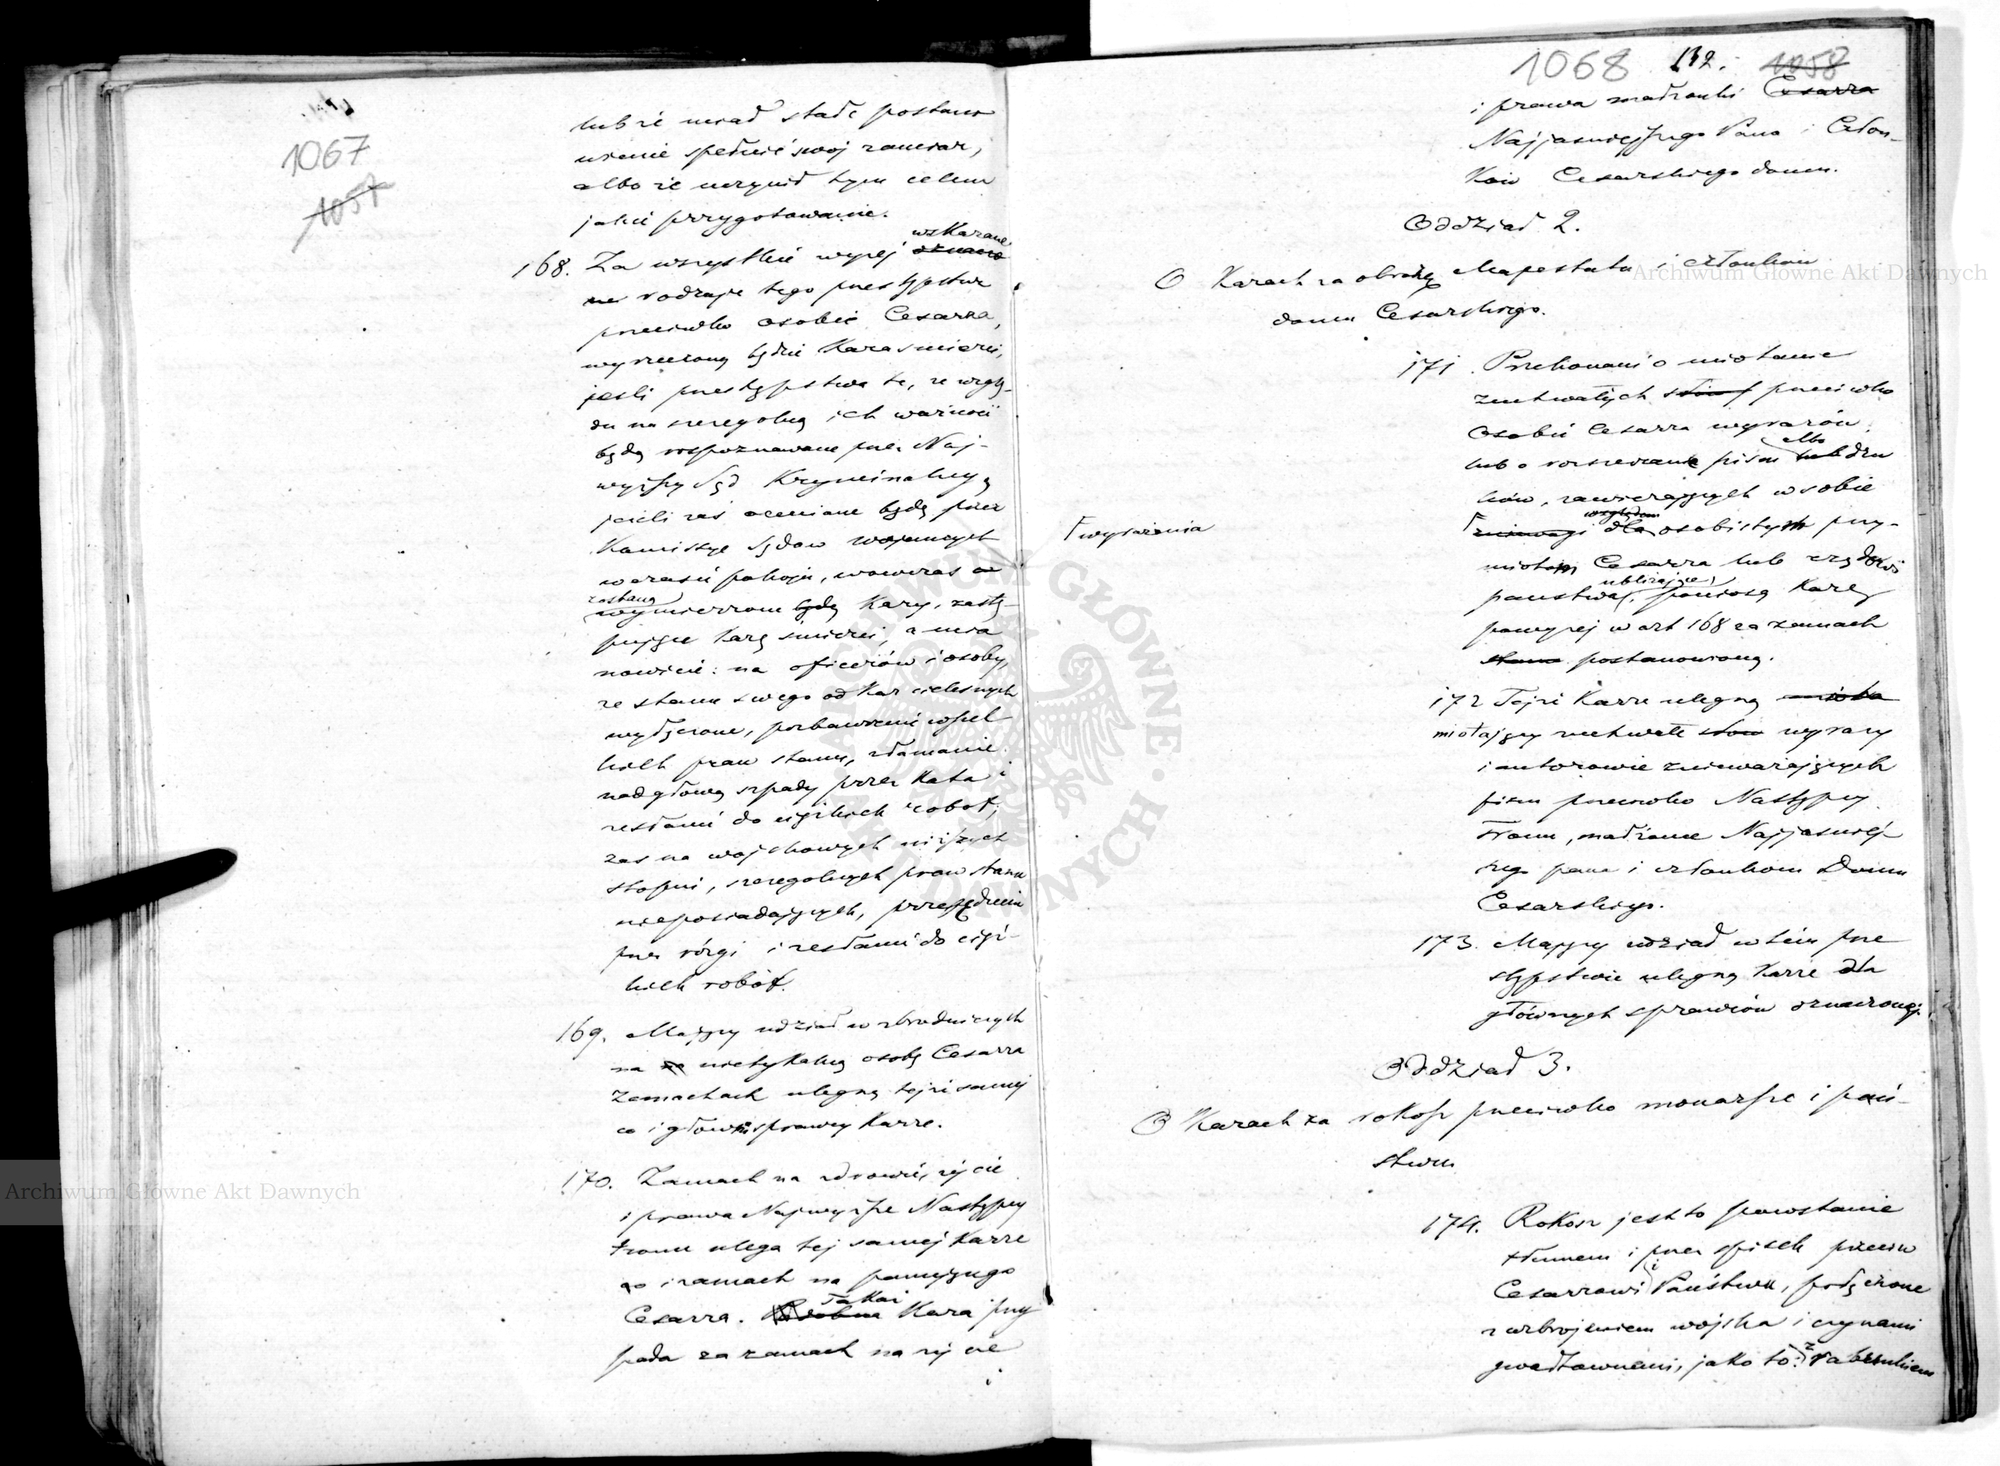 1067
1057
lub że miał stałe postano
wienie spełnić swój zamiar,
albo że uczynił tym celem
jakie przygotowanie.
wskazane
168. Za wszystkie wyżej oznaczo
ne rodzaje tego przestępstwa
przeciwko osobie Cesarza,
wyrzeczoną będzie Kara śmierci,
jeśli przestępstwa te, ze wzglę-
du na szczególną ich ważność
będą rozpoznawane przez Naj-
wyższy Sąd Kryminalny,
jeśli zaś ocenione będą przez
Komissye Sądów wojennych
w czasie pokoju, wówczas
zostaną
wymierzone będą Kary, zastę-
pujące karę śmierci, a mia
nowicie: na oficerów i osoby,
ze stanu swego od Kar cielesnych
wyłączone, pozbawienie wszel
kich praw stanu, złamanie
nad głową szpady przez Kata i
zesłanie do ciężkich robot;
zaś na wojskowych niższych
stopni, szczególnych praw stanu
nieposiadających, przepędzenie
przez rózgi i zesłanie do cięż-
kich robót.
169. Mający udział w zbrodniczych
na nietykalną osobę Cesarza
Zamachach ulegną tejże samej
co i główni sprawcy Karze.
170. Zamach na zdrowie, życie
i prawa Najwyższe Następcy
tronu ulega tej samej Karze
co i zamach na panującego
Takaż
Cesarza. Podobna Kara przy
pada za zamach na życie
i
1068 132. 1058
i prawa małżonki Cesarza
Najjaśniejszego Pana i Człon-
Ków Cesarskiego domu.
Oddział 2.
O Karach za obrazę Majestatu i członków
domu Cesarskiego.
171. Przekonani o miotanie
zuchwałych słów przeciwko
Osobie Cesarza wyrazów,
albo
lub o rozsiewanie pism lub dru
ków, zawierających w sobie
względem
zniewagi dla osobistych przy-
wyrażenia
miotom Cesarza lub rządowi
ubliżające,
państwa, poniosą Karę
powyżej w art 168 za zamach
postanowioną.
172 Tejże Karze ulegną miota
miotający zuchwałe słowa wyrazy
i autorowie znieważających
pism przeciwko Następcy
tronu, małżonce Najjaśniej-
szego pana i członkom Domu
Cesarskiego.
173. Mający udział w tém prze
stępstwie ulegną Karze dla
głównych sprawców oznaczonej.
Oddział 3.
O Karach za rokosz przeciwko monarsze i pań-
stwu
174. Rokosz jest to powstanie
tłumem i przez spisek przeciw
Cesarzowi i Państwu, połączone
z uzbrojeniem wojska i czynami
gwałtownemi, jako to: z rabunkiem
Archiwum Główne Akt Dawnych
Archiwum Główne Akt Dawnych
ARCHIWUM GŁÓWNE AKT DAWNYCH